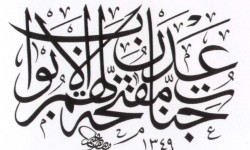 جنات عدن مفتحة لهم الأبواب
١٣٤٩